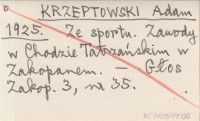 KRZEPTOWSKI Adam
1925. Ze sportu. Zawody
w Chodzie Tatrzańskim w
Zakopanem. — Głos
Zakop. 3, nr 35.